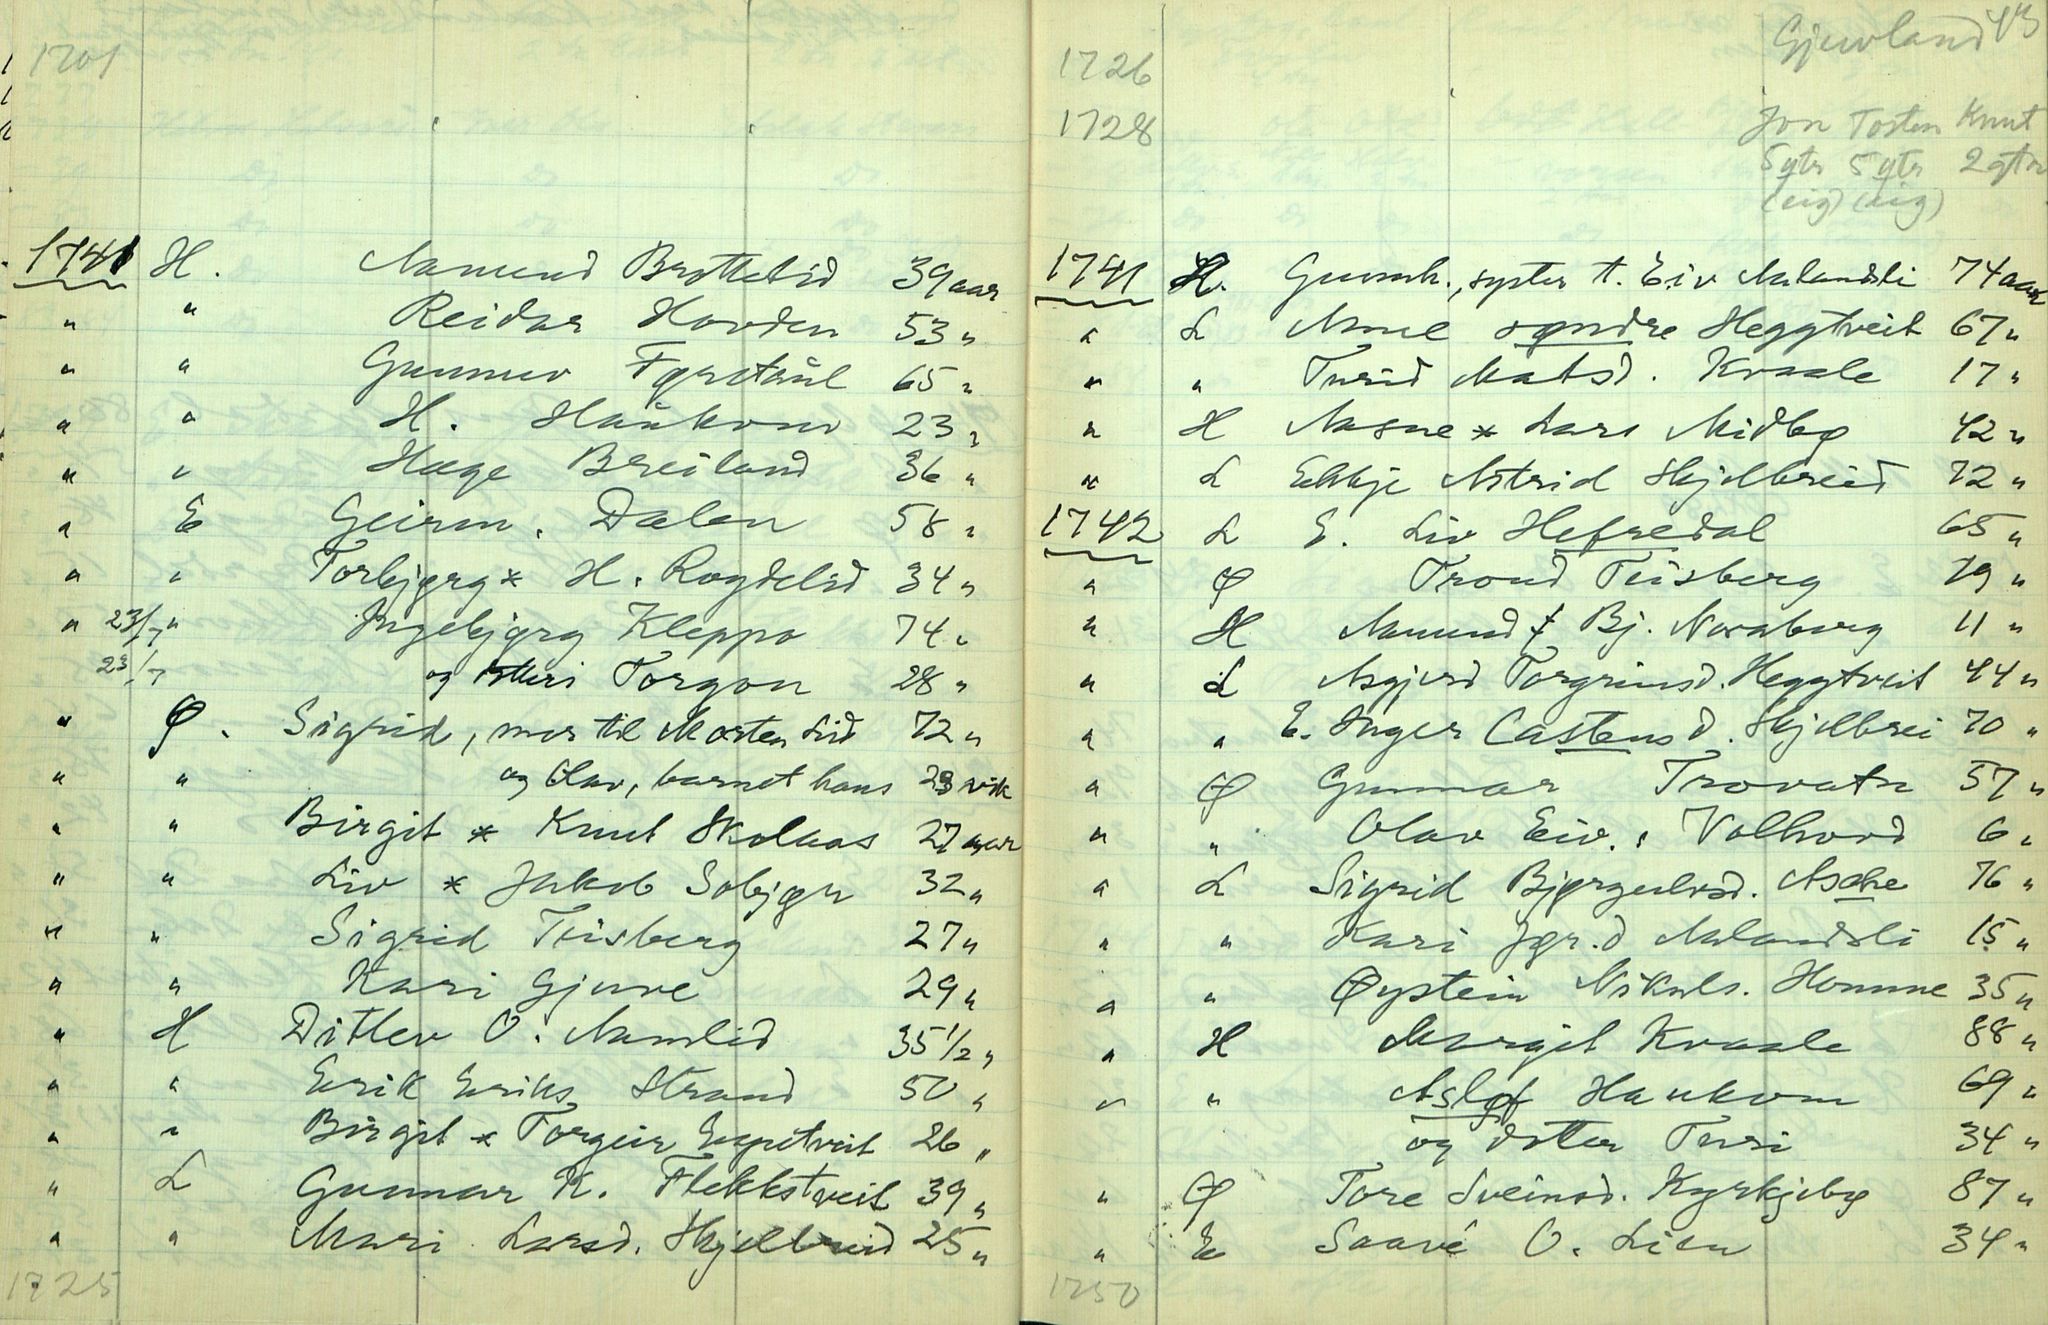 1701
1741 H. Aamund Brottelid 39 aar
" " Reidar Hovden 53 "
" " GunnuvFørstøul 65 "
" " H. Haukom 23 "
" " Hæge Breiland 36 "
" E Geirm. Dalen 58 "
" " Torbjørg * H. Rogdelid 34 "
" 23/7 " Ingebjørg Kleppo 74 "
23/7 og Torgon 28 "
" Ø. Sigrid, mor til Morten Lid 72 "
" " og Olav, barnet hans 23 vik
" " Birgit * Knut Skolaas 27 aar
" " Liv * Jakob Sobjøn 32 "
" " Sigrid Teisberg 27 "
" " Kari Gjuve 29 "
" H Ditlev O. Aamlid 35 1/2 "
" " Erik Eriks. Strand 50 "
" " Birgit * Torgeir 26 "
" L Gunnar K. Flekkstveit 39 "
" " Mari Larsd. Skjelbreid 25 "
1725
Gjuvland 43
1726
1728
Jon Tosten Knut
5 ytr 5 ytr
(eig) (eig)
1741 H. Gunnh., syster t. Eiv Aalandsli 74 aar
" L Anne søndre Heggtveit 67 "
" " Turid Matsd. Kvaale 17 "
" H Aasne * Lars Midbø 42 "
" L Ekkje Astrid Skjelbreid 72 "
1742 L E. Liv Hefredal 65 "
" Ø Trond Teisberg 79 "
" H Aamund Bj. Noraberg 11 "
" L Asgjerd Torgrimsd. Heggtveit 44 "
" " E. Inger Castensd. Skjelbrei 70 "
" Ø Gunnar Trovatn 57 "
" " Olav Eiv. : Vallvord 6 "
" L Sigrid Bjørgulvsd. Asche 76 "
" " Kari Jør.d Aalandsli 15 "
" " Øystein Nikuls. Homme 35 "
" H Margit Kvaale 88 "
" " Asløf Haukom 69 "
og dotter Turi 34 "
" Ø Tore Sveinsd. Kyrkjebø 87 "
" E Saavé O. Lien 34 "
1750